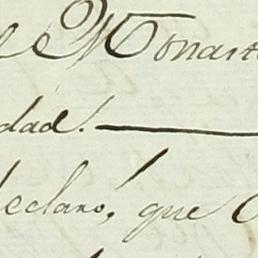 e Monast
dad.
declaro, que